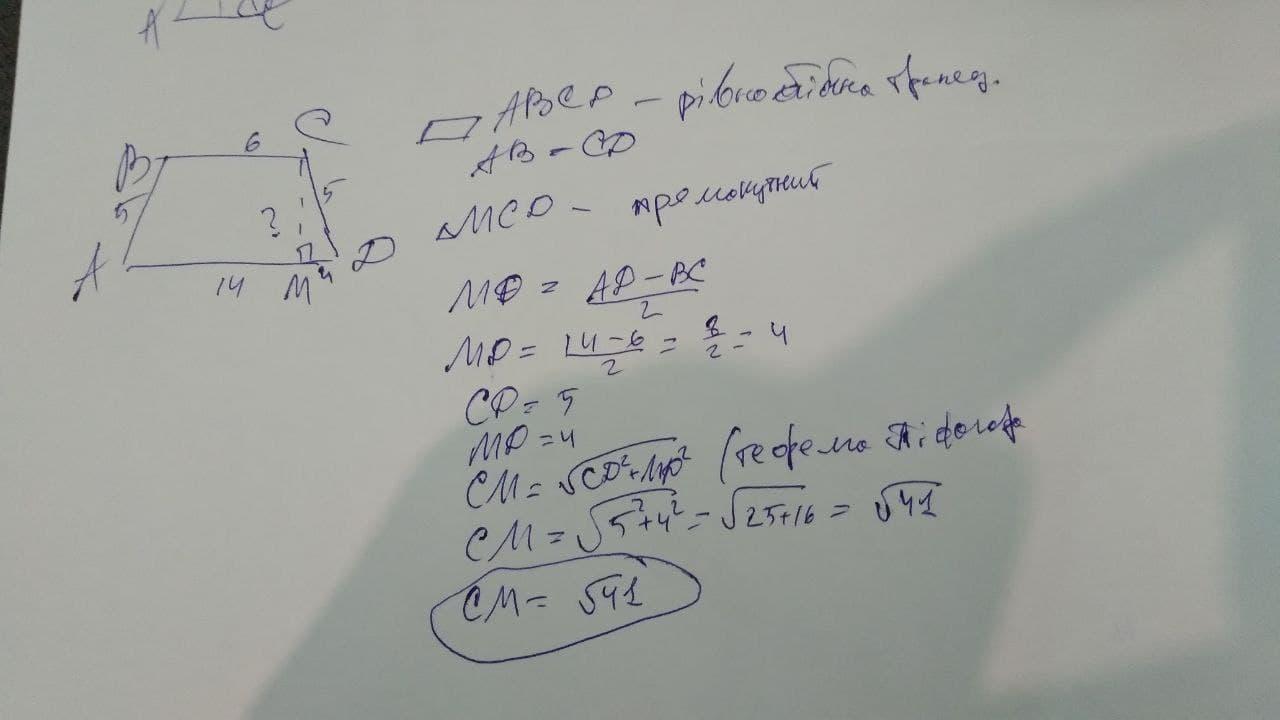 A
6
B C
5 ? 5
A 14 M 4 D
ABCD – рівнобічна трапец.
AB = CD
△MCD – прямокутний
MD = (AD – BC)/2
MD = (14 – 6)/2 = 8/2 = 4
CD = 5
MD = 4
CM = √(CD² + MD²) (теорема Піфагора
CM = √(5² + 4²) = √(25+16) = √41
CM = √41